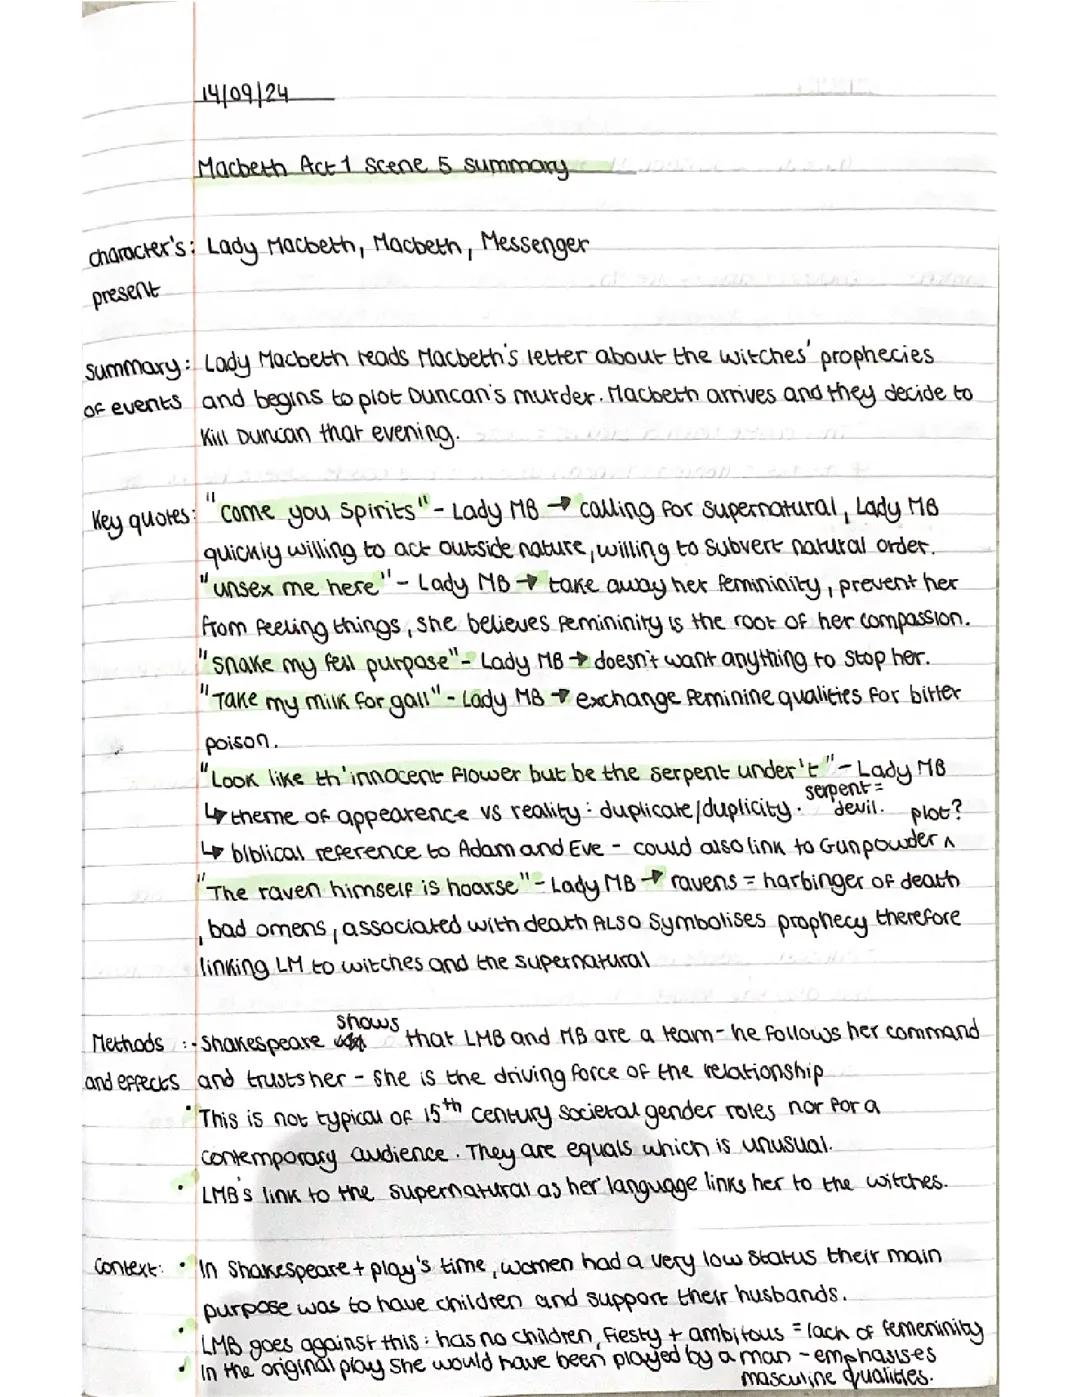 14/09/24
Macbeth Act 1 Scene 5 summary
character's: Lady Macbeth, Macbeth, Messenger
present
summary: Lady Macbeth reads Macbeth's letter about the witches' prophecies
of events and begins to plot Duncan's murder. Macbeth arrives and they decide to
kill Duncan that evening.
Key quotes: "come you Spirits" - Lady MB → calling for supernatural, Lady MB
quickly willing to act outside nature, willing to subvert natural order.
"unsex me here" - Lady MB → take away her femininity, prevent her
from feeling things, she believes femininity is the root of her compassion.
"Shake my fell purpose" - Lady MB → doesn't want anything to stop her.
"Take my milk for gall" - Lady MB → exchange feminine qualities for bitter
poison.
"Look like th'innocent flower but be the serpent under't" - Lady MB
↳ theme of appearence vs reality: duplicate/duplicity. serpent = devil.
↳ biblical reference to Adam and Eve - could also link to Gunpowder ^ plot?
"The raven himself is hoarse" - Lady MB → ravens = harbinger of death
, bad omens, associated with death ALSO Symbolises prophecy therefore
linking LM to witches and the supernatural
Methods :- Shakespeare shows that LMB and MB are a team - he follows her command
and effects and trusts her - she is the driving force of the relationship
• This is not typical of 15th century societal gender roles nor for a
contemporary audience. They are equals which is unusual.
• LMB's link to the supernatural as her language links her to the witches.
Context: • In Shakespeare + play's time, women had a very low status their main
purpose was to have children and support their husbands.
• LMB goes against this: has no children, fiesty + ambitous = lack of femeninity
• In the original play she would have been played by a man - emphasises
masculine qualities.